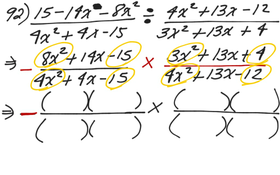 92) (15 - 14x - 8x²)/(4x² + 4x - 15) ÷ (4x² + 13x - 12)/(3x² + 13x + 4)
⇒ - (8x² + 14x - 15)/(4x² + 4x - 15) × (3x² + 13x + 4)/(4x² + 13x - 12)
⇒ - ( )( )/( )( ) × ( )( )/( )( )